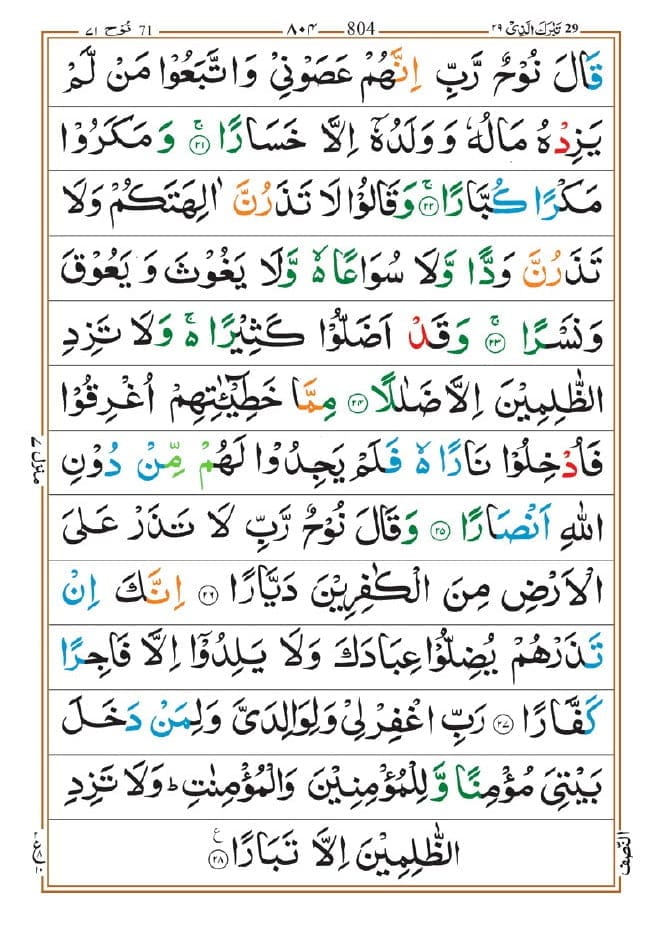 29 تَبٰرَكَ الَّذِیْ ۲۹ 804 ۸۰۴ 71 نُوْح ۷۱
قَالَ نُوْحٌ رَّبِّ اِنَّهُمْ عَصَوْنِیْ وَاتَّبَعُوْا مَنْ لَّمْ
یَزِدْهُ مَالُهٗ وَوَلَدُهٗۤ اِلَّا خَسَارًا ۚ۝۲۱ وَمَكَرُوْا
مَكْرًا كُبَّارًا ۚ۝۲۲ وَقَالُوْا لَا تَذَرُنَّ اٰلِهَتَكُمْ وَلَا
تَذَرُنَّ وَدًّا وَّلَا سُوَاعًا ۙ۬ وَّلَا یَغُوْثَ وَیَعُوْقَ
وَنَسْرًا ۚ۝۲۳ وَقَدْ اَضَلُّوْا كَثِیْرًا ۚ۬ وَلَا تَزِدِ
الظّٰلِمِیْنَ اِلَّا ضَلٰلًا ۝۲۴ مِمَّا خَطِیْٓـٰٔتِهِمْ اُغْرِقُوْا
فَاُدْخِلُوْا نَارًا ۙ۬ فَلَمْ یَجِدُوْا لَهُمْ مِّنْ دُوْنِ
اللّٰهِ اَنْصَارًا ۝۲۵ وَقَالَ نُوْحٌ رَّبِّ لَا تَذَرْ عَلَی
الْاَرْضِ مِنَ الْكٰفِرِیْنَ دَیَّارًا ۝۲۶ اِنَّكَ اِنْ
تَذَرْهُمْ یُضِلُّوْا عِبَادَكَ وَلَا یَلِدُوْۤا اِلَّا فَاجِرًا
كَفَّارًا ۝۲۷ رَبِّ اغْفِرْ لِیْ وَلِوَالِدَیَّ وَلِمَنْ دَخَلَ
بَیْتِیَ مُؤْمِنًا وَّلِلْمُؤْمِنِیْنَ وَالْمُؤْمِنٰتِ ؕ وَلَا تَزِدِ
الظّٰلِمِیْنَ اِلَّا تَبَارًا ۝۲۸
منزل ۷
النّصف